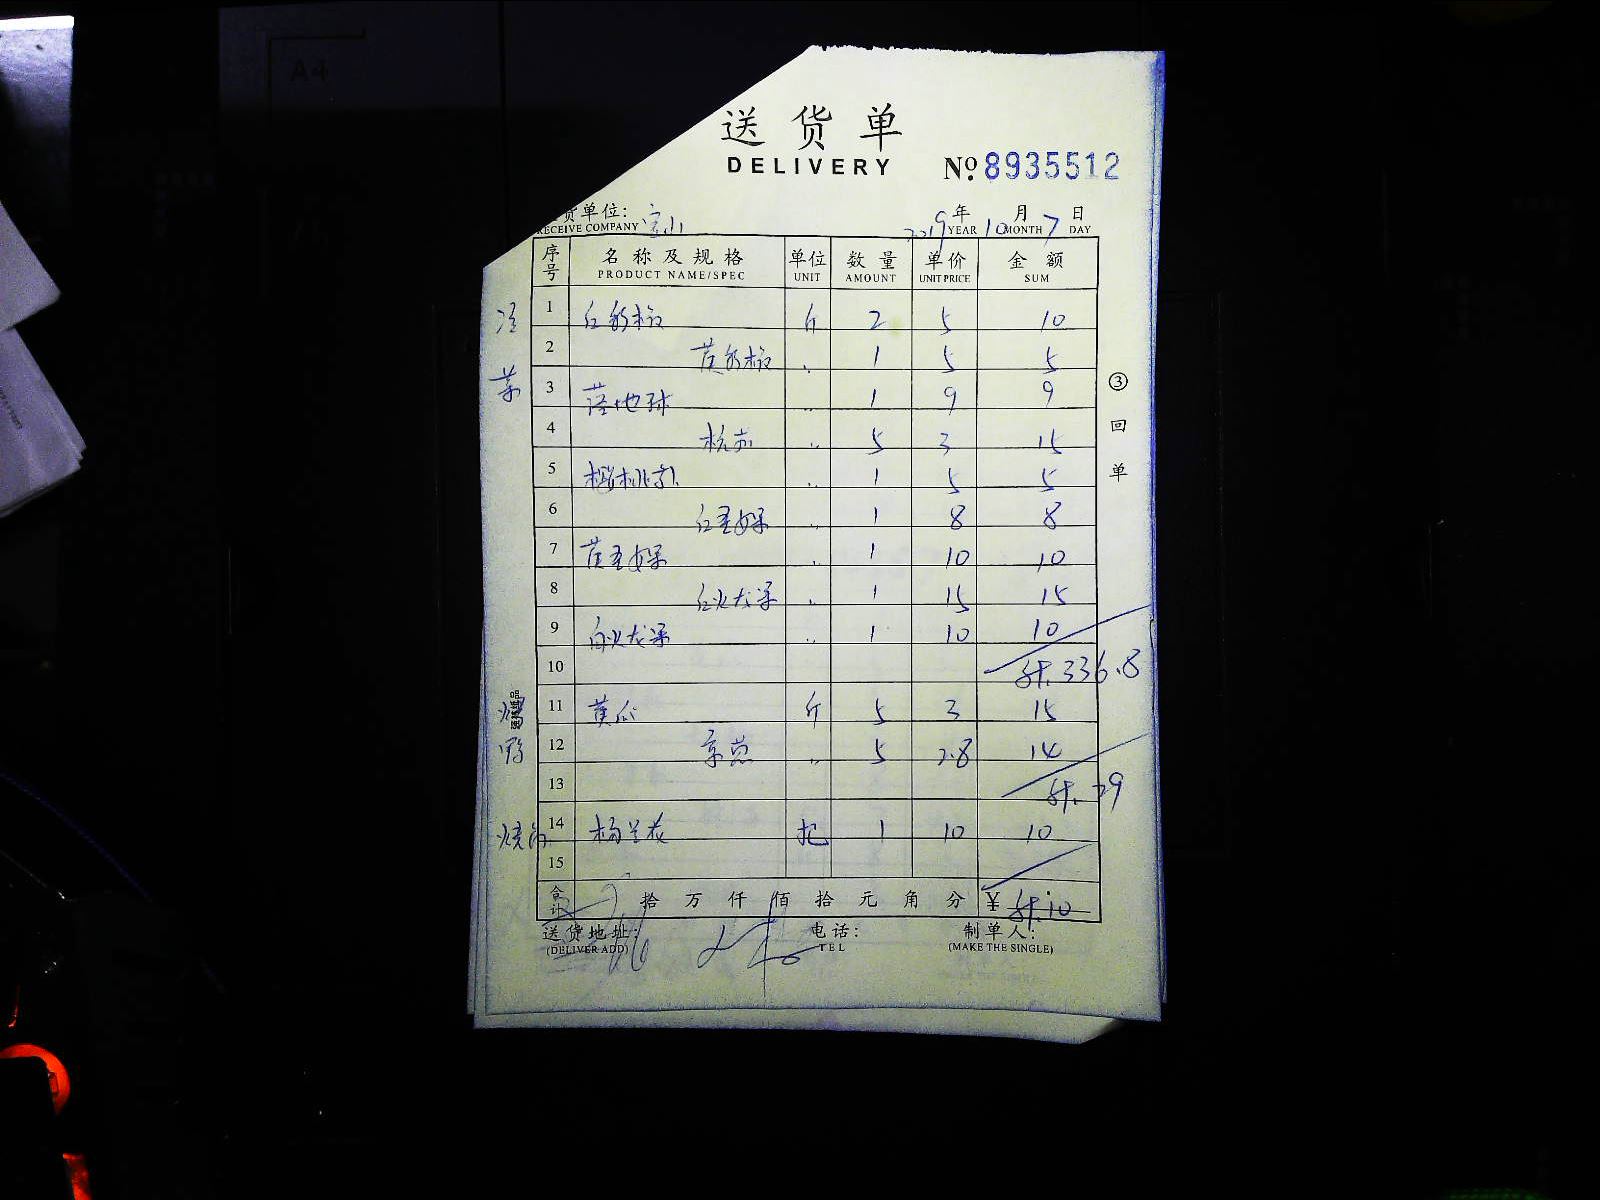 A4
送货单
DELIVERY
№ 8935512
货单位: 宝山 2019年10月7日
RECEIVE COMPANY YEAR MONTH DAY
序号 名称及规格 单位 数量 单价 金额
PRODUCT NAME/SPEC UNIT AMOUNT UNIT PRICE SUM
1 红彩椒 斤 2 5 10
2 黄彩椒 〃 1 5 5
3 落地球 〃 1 9 9
4 杭茄 〃 5 3 15
5 樱桃 〃 1 5 5
6 红圣女果 〃 1 8 8
7 黄圣女果 〃 1 10 10
8 红火龙果 〃 1 15 15
9 白火龙果 〃 1 10 10
10 计.336.8
11 黄瓜 斤 5 3 15
12 京葱 〃 5 2.8 14
13 计.29
14 杨兰花 把 1 10 10
15
合计 拾万仟佰拾元角分 ¥ 计.10
送货地址: 电话: 制单人:
(DELIVER ADD) TEL (MAKE THE SINGLE)
凉菜
烧腊
③回单